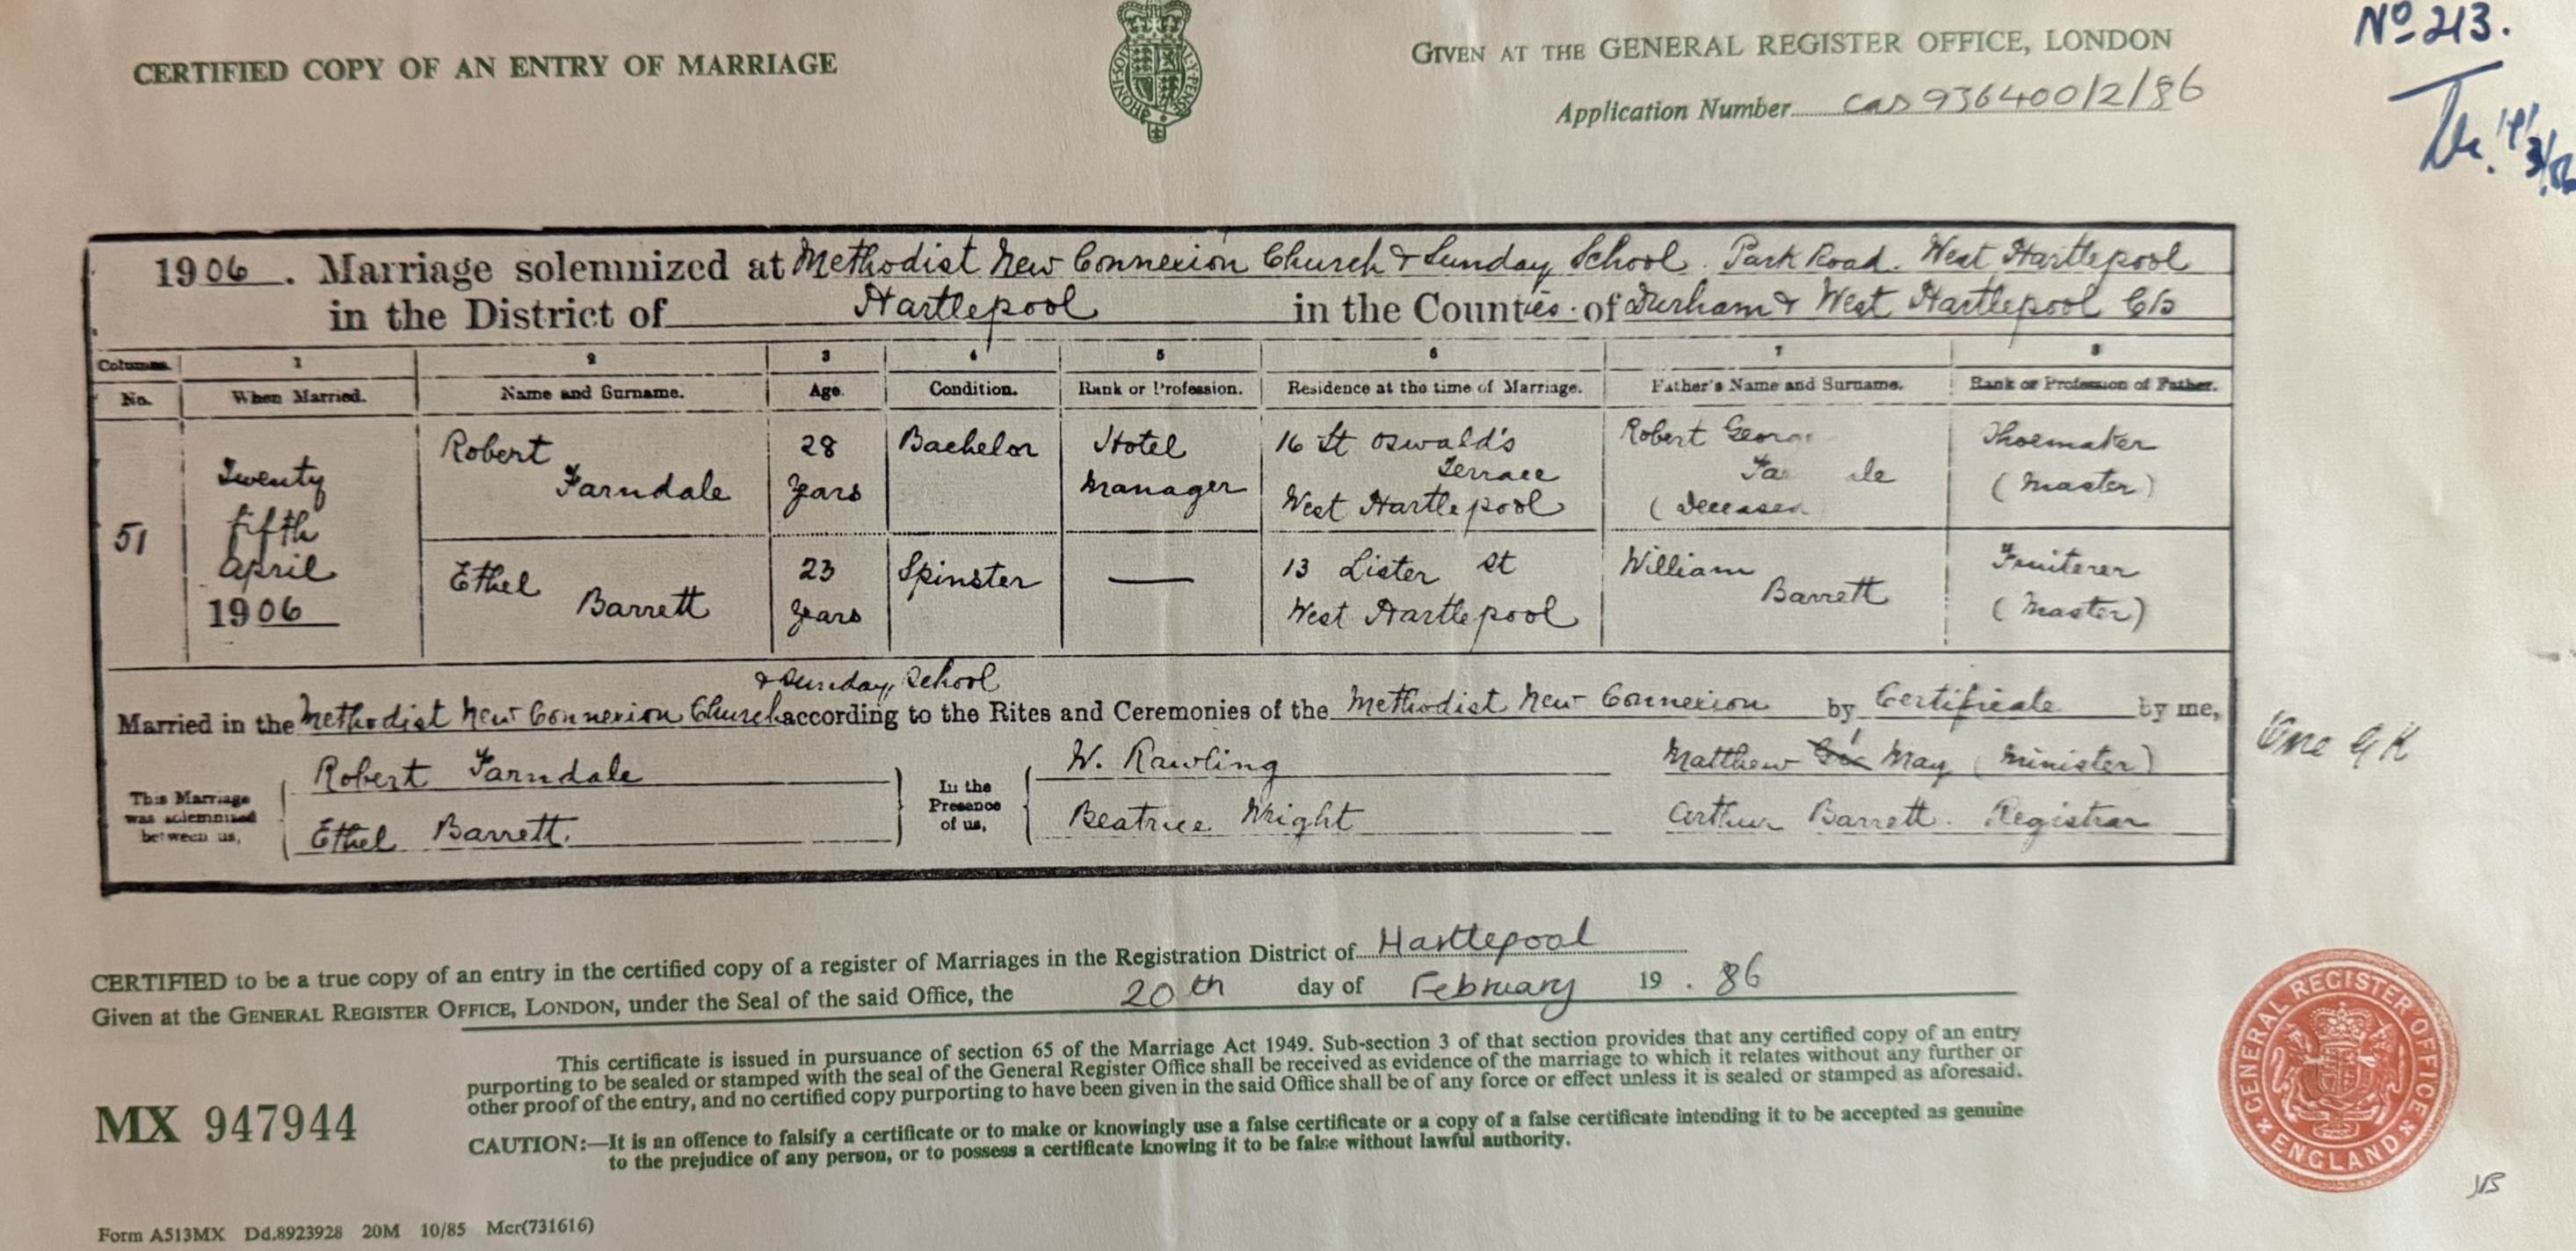 CERTIFIED COPY OF AN ENTRY OF MARRIAGE
GIVEN AT THE GENERAL REGISTER OFFICE, LONDON
Application Number cas 936400/2/86
No 213.
1906. Marriage solemnized at Methodist New Connexion Church & Sunday School. Park Road. West Hartlepool
in the District of Hartlepool in the Counties of Durham & West Hartlepool C/B
Columns 1 2 3 4 5 6 7 8
No. When Married. Name and Surname. Age. Condition. Rank or Profession. Residence at the time of Marriage. Father's Name and Surname. Rank or Profession of Father.
51
Twenty
fifth
April
1906
Robert
Farndale
28
years
Bachelor
Hotel
Manager
16 St Oswald's
Terrace
West Hartlepool
Robert Georg
Fa le
(Deceased
Shoemaker
(Master)
Ethel
Barrett
23
years
Spinster
—
13 Lister St
West Hartlepool
William
Barrett
Fruiterer
(Master)
& Sunday School
Married in the Methodist New Connexion Church according to the Rites and Ceremonies of the Methodist New Connexion by Certificate by me,
This Marriage
was solemnized
between us,
Robert Farndale
Ethel Barrett.
In the
Presence
of us,
W. Rawling
Beatrice Wright
Matthew May (Minister)
Arthur Barrett. Registrar
CERTIFIED to be a true copy of an entry in the certified copy of a register of Marriages in the Registration District of Hartlepool
Given at the GENERAL REGISTER OFFICE, LONDON, under the Seal of the said Office, the 20th day of February 19.86
This certificate is issued in pursuance of section 65 of the Marriage Act 1949. Sub-section 3 of that section provides that any certified copy of an entry
purporting to be sealed or stamped with the seal of the General Register Office shall be received as evidence of the marriage to which it relates without any further or
other proof of the entry, and no certified copy purporting to have been given in the said Office shall be of any force or effect unless it is sealed or stamped as aforesaid.
MX 947944
CAUTION:—It is an offence to falsify a certificate or to make or knowingly use a false certificate or a copy of a false certificate intending it to be accepted as genuine
to the prejudice of any person, or to possess a certificate knowing it to be false without lawful authority.
GENERAL REGISTER OFFICE
ENGLAND
Form A513MX Dd.8923928 20M 10/85 Mcr(731616)